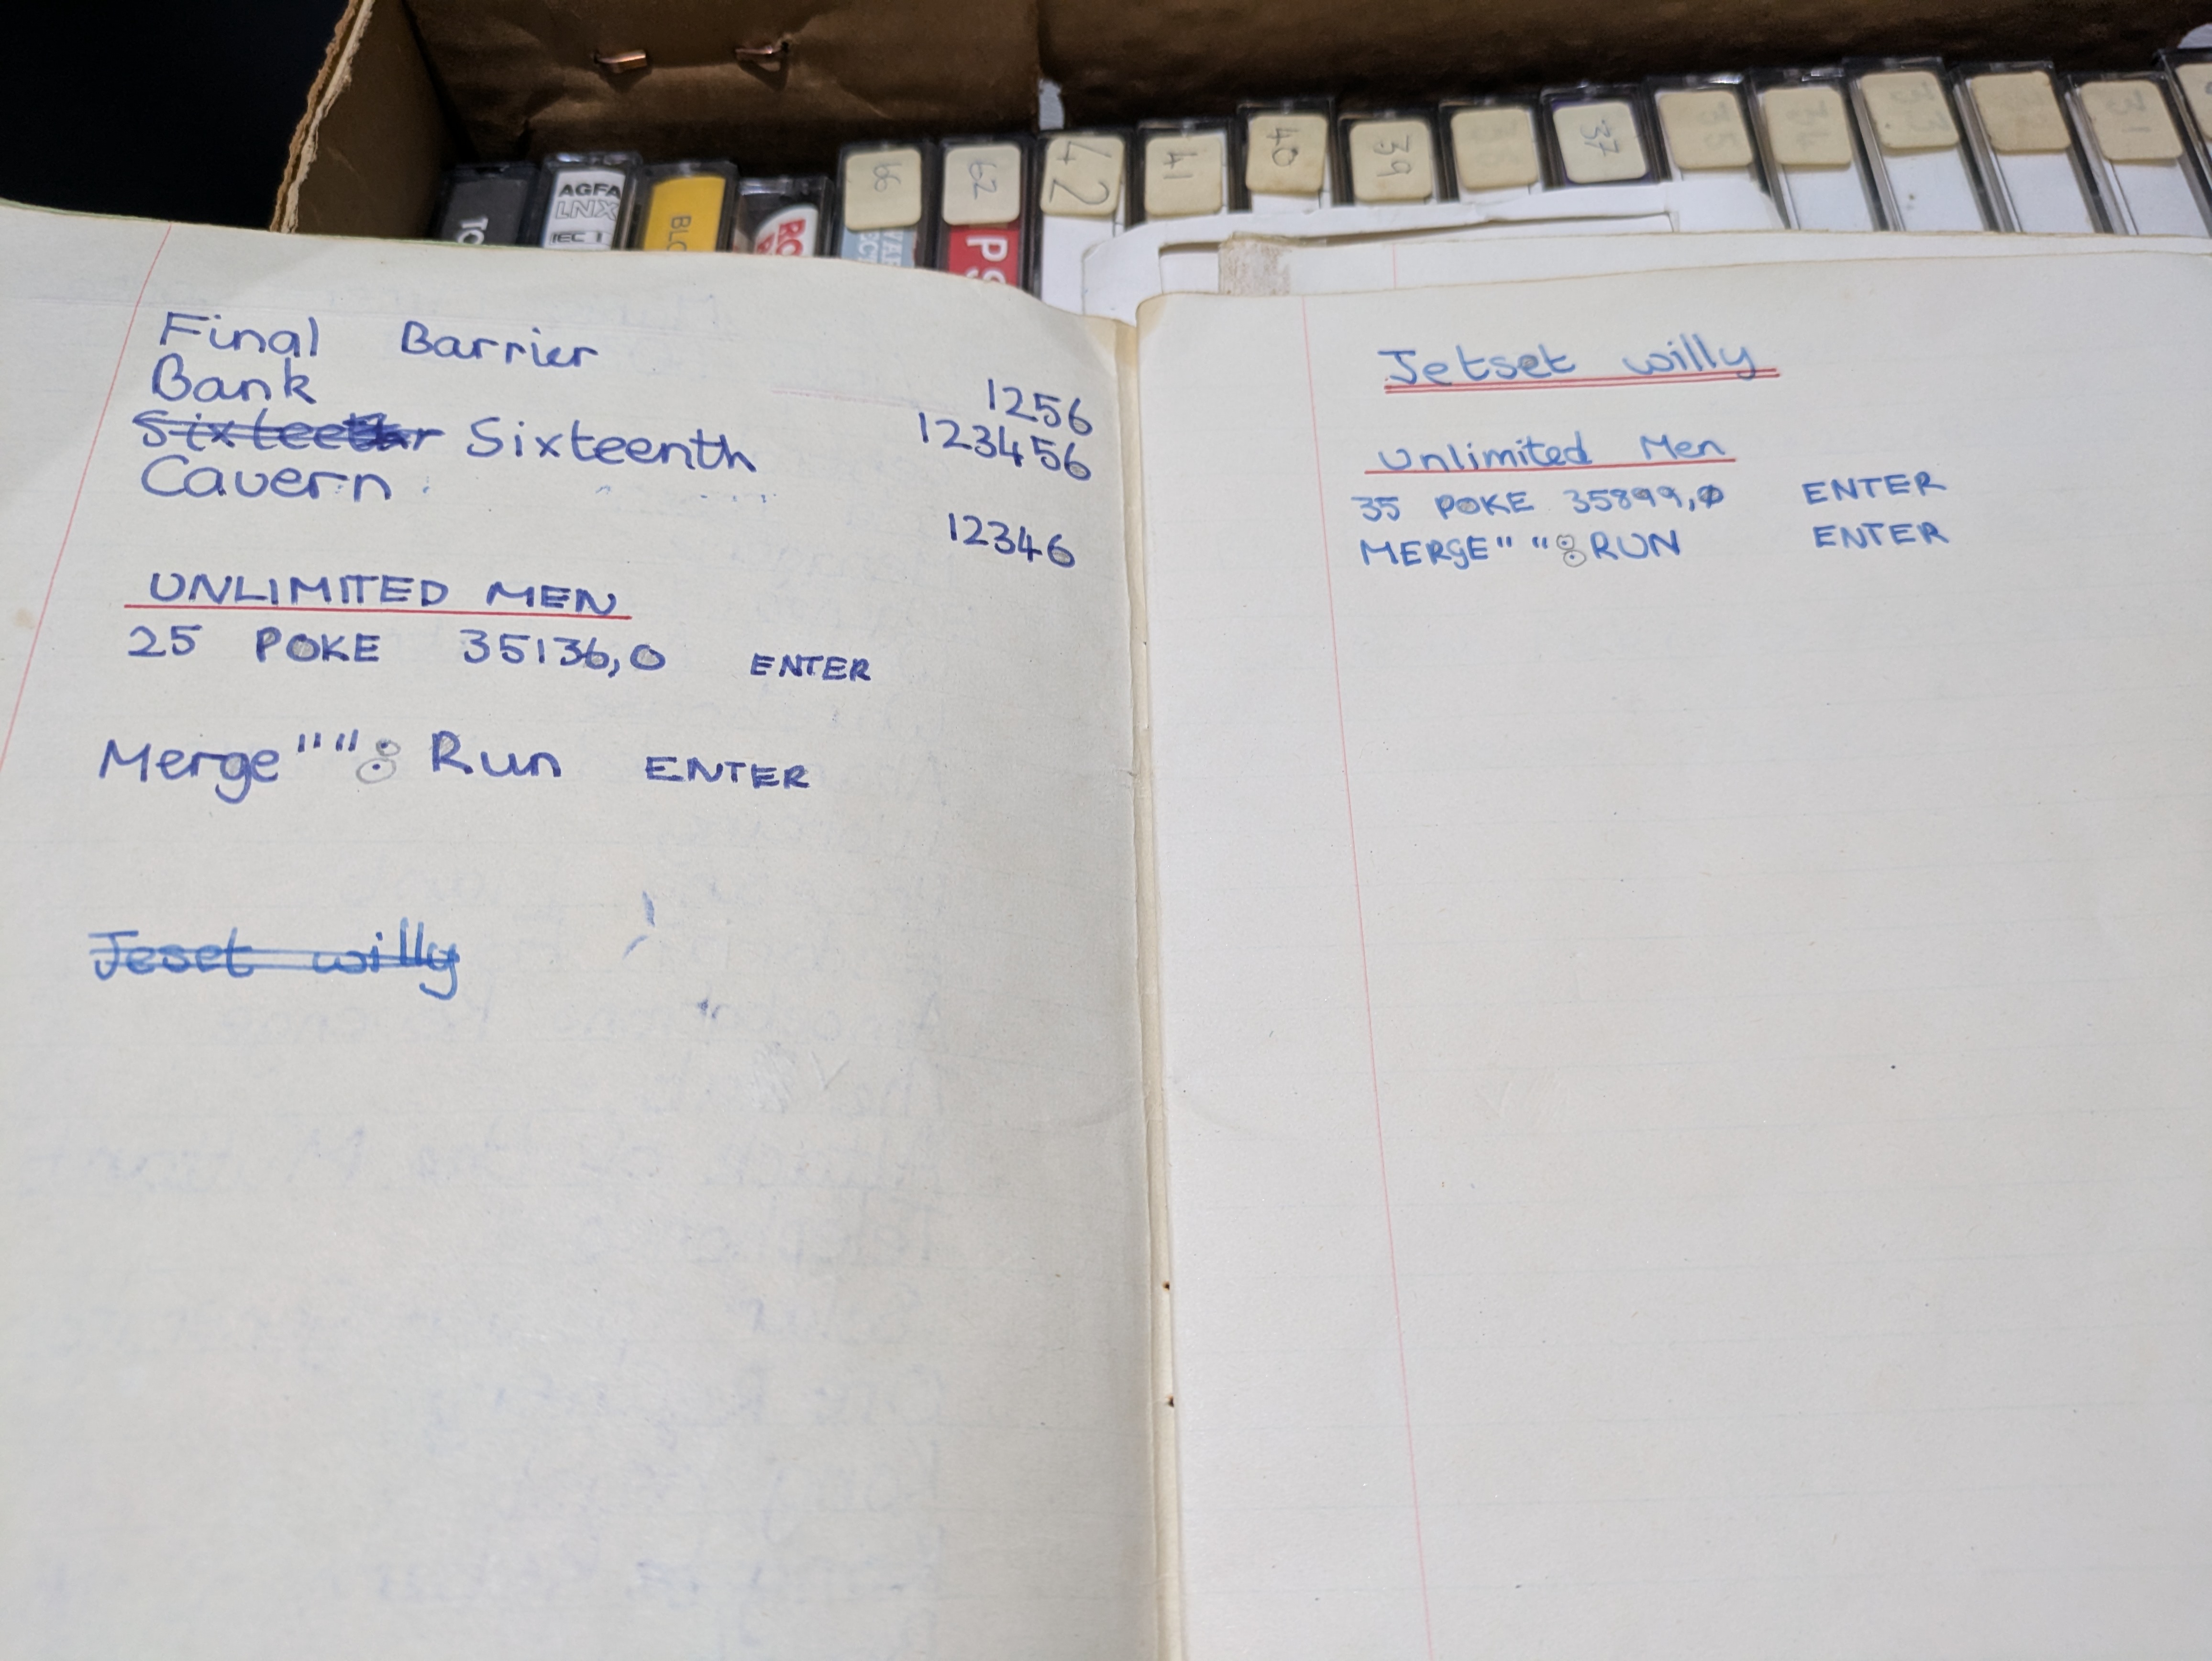 TO
AGFA
LNX
IEC I
BLC
RO
66
62
PS
42
41
40
39
37
35
34
33
32
31
Final Barrier
Bank 1256
Sixteenth 123456
Cavern 12346
UNLIMITED MEN
25 POKE 35136,0 ENTER
Merge"": Run ENTER
Jeset willy
Jetset willy
Unlimited Men
35 POKE 35899,0 ENTER
MERGE" ":RUN ENTER